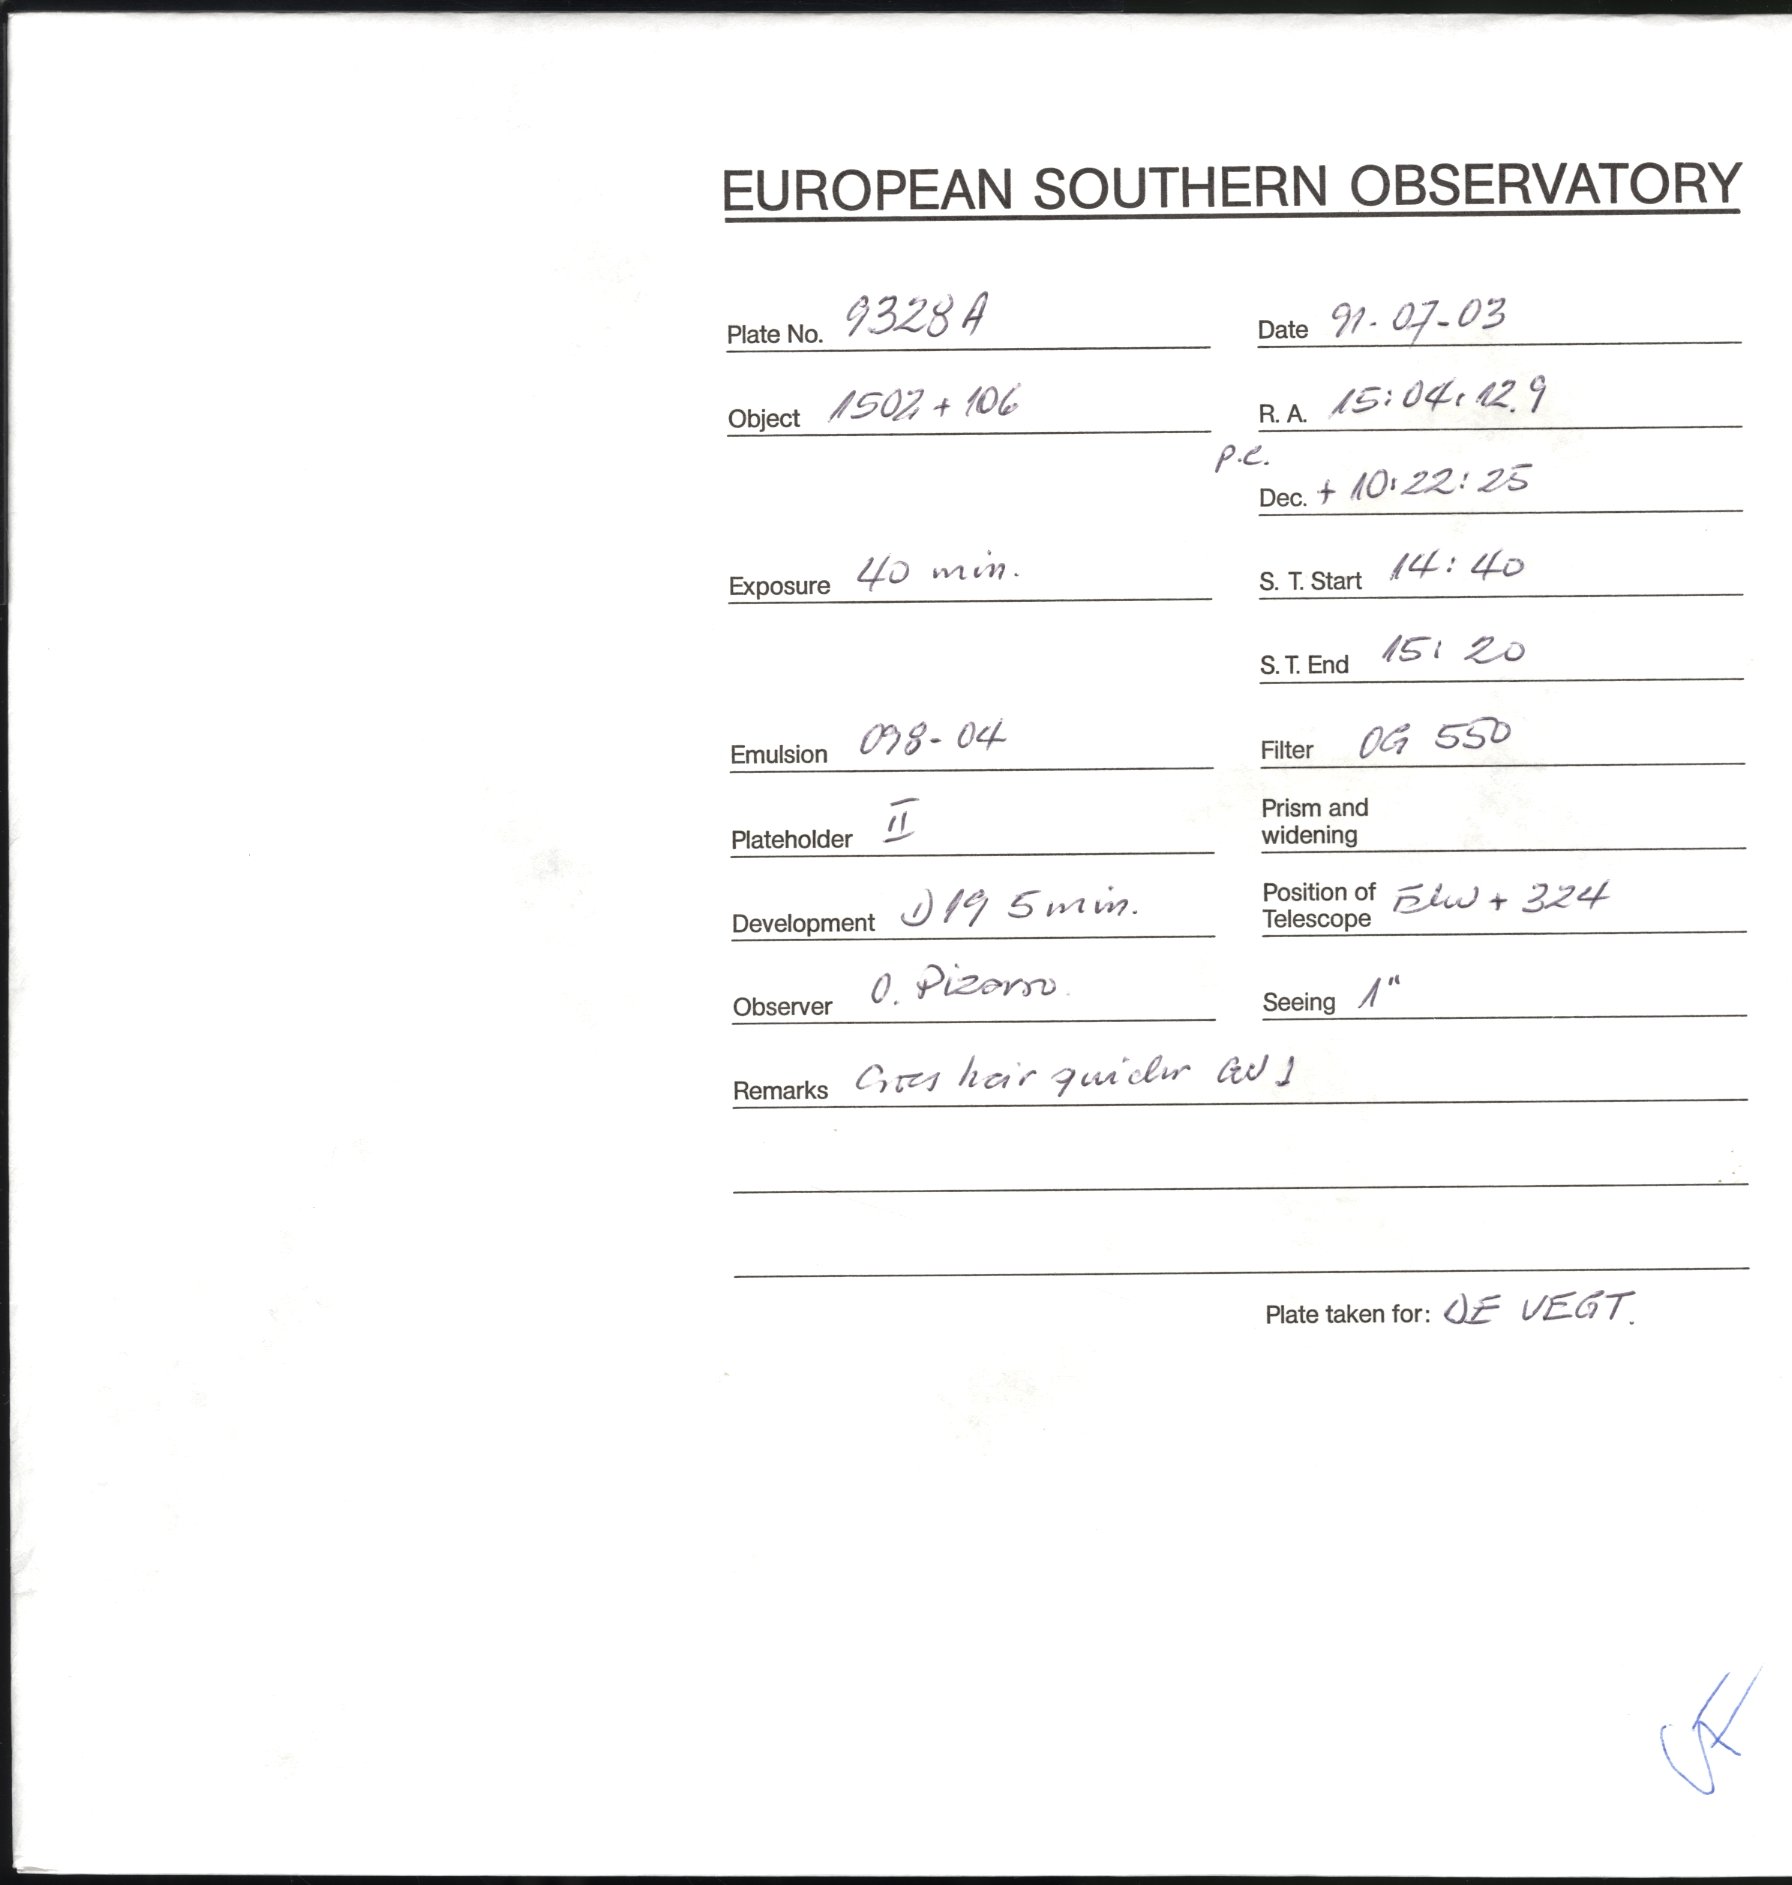 EUROPEAN SOUTHERN OBSERVATORY
Plate No. 9328A Date 91-07-03
Object 1502+106 R. A. 15:04:12.9
p.c.
Dec. + 10:22:25
Exposure 40 min. S. T. Start 14:40
S. T. End 15:20
Emulsion 098-04 Filter OG 550
Plateholder II Prism and
widening
Development D19 5 min. Position of
Telescope + 324
Observer O. Pizarro. Seeing 1"
Remarks Cros hair guider
Plate taken for: DE VEGT.